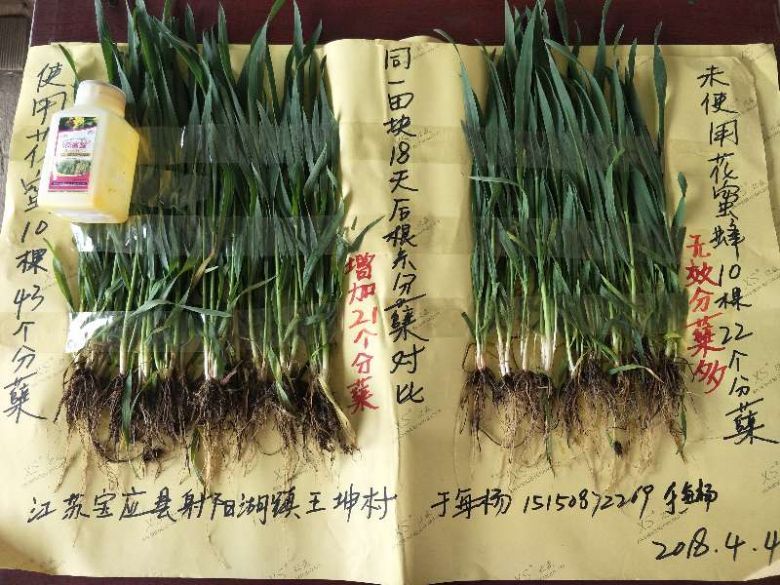 使用花蜜蜂10棵43个分蘖
增加21个分蘖
同一田块18天后根系分蘖对比
未使用花蜜蜂10棵22个分蘖
无效分蘖多
江苏宝应县射阳湖镇王坤村
于每杨 15150872269
2018.4.4